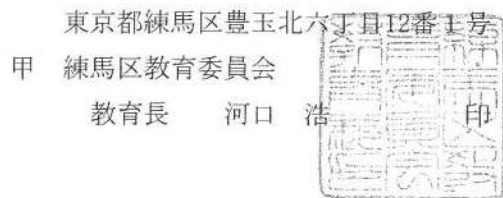 東京都練馬区豊玉北六丁目12番1号
甲 練馬区教育委員会
教育長 河口 浩 印